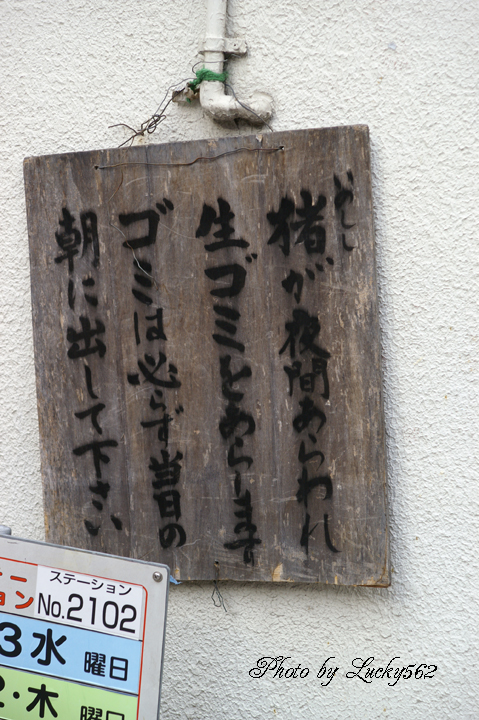 いのしし
猪が夜間あらわれ
生ゴミをあらします
ゴミは必らず当日の
朝に出して下さい
ステーション
No.2102
3水 曜日
・木 曜日
Photo by Lucky562